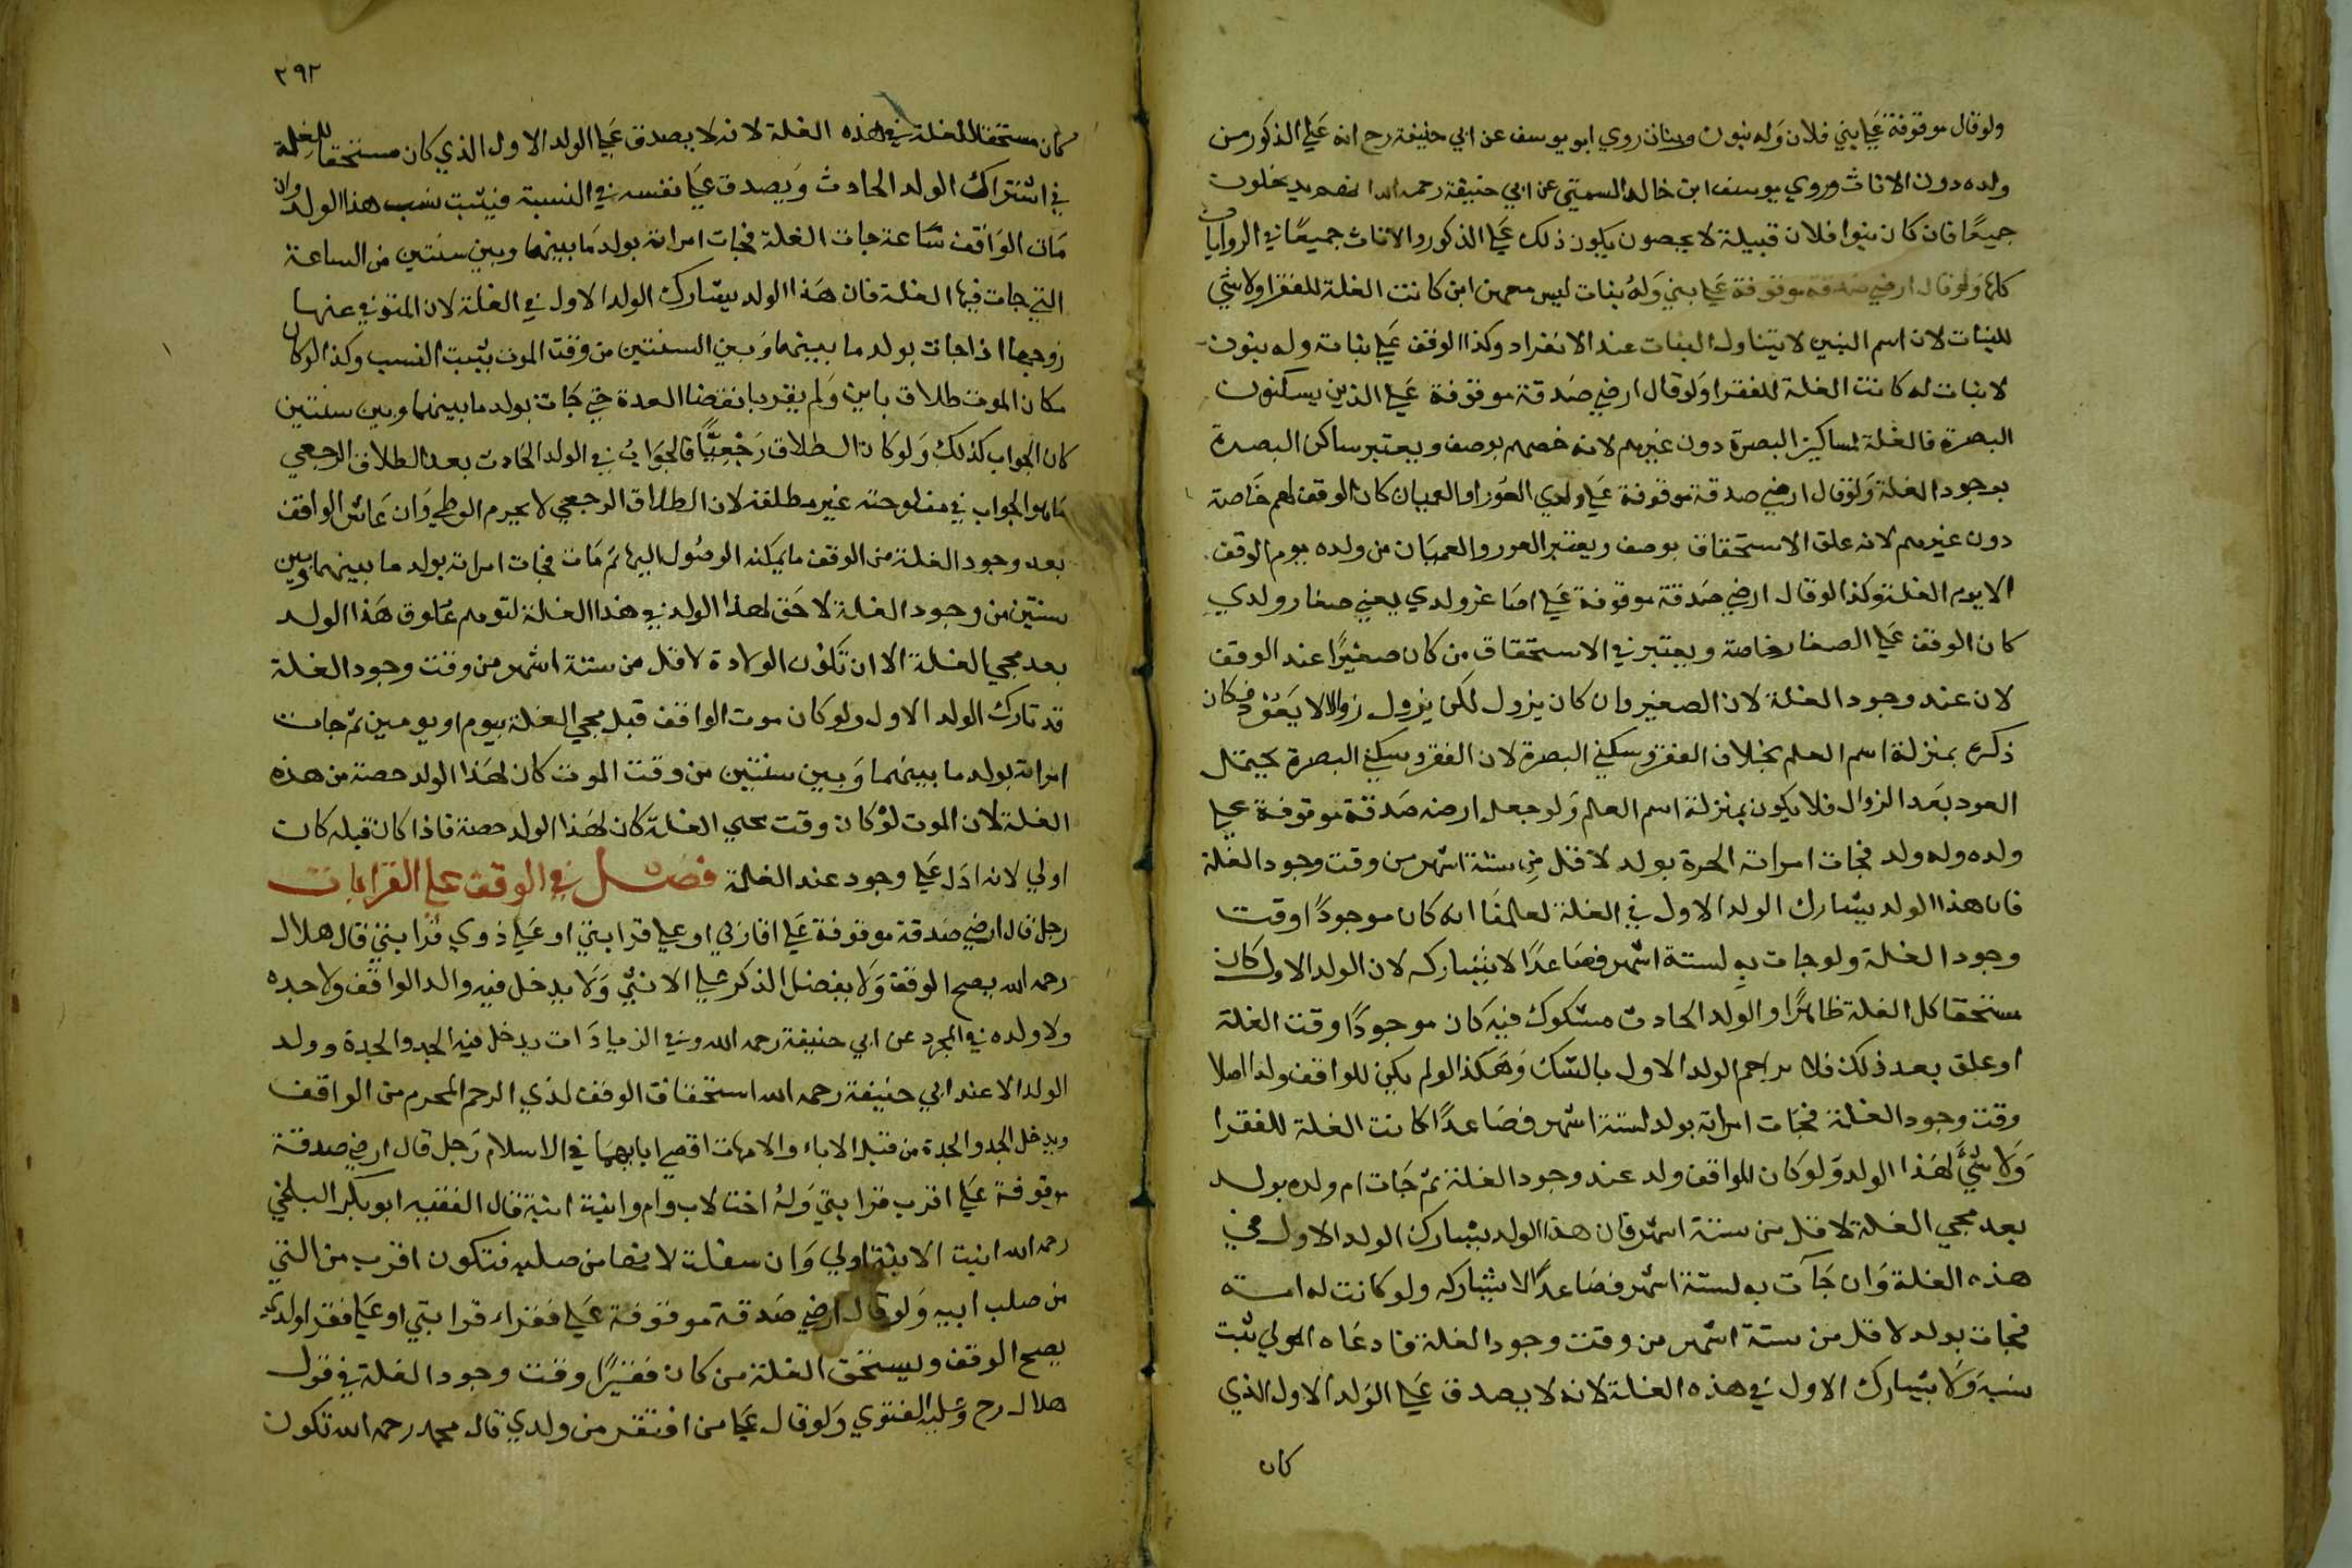 ولو قال موقوفة علي بني فلان وله بنون وبنات روي ابو يوسف عن ابي حنيفة رح انه علي الذكور من
ولده دون الاناث وروي يوسف ابن خالد السمتي عن ابي حنيفة رحمه الله انهم يدخلون
جميعًا فان كان بنوا فلان قبيلة لا يحصون يكون ذلك علي الذكور والاناث جميعًا في الروايات
كلها ولو قال ارضي صدقة موقوفة علي بني وله بنات ليس معهن ابن كانت الغلة للفقرا ولا شي
للبنات لان اسم البنين لا يتناول البنات عند الانفراد وكذا الوقف علي بناته وله بنون
لا بنات له كانت الغلة للفقرا ولو قال ارضي صدقة موقوفة علي الذين يسكنون
البصرة فالغلة لساكني البصرة دون غيرهم لانه خصهم بوصف ويعتبر ساكن البصرة
بوجود الغلة ولو قال ارضي صدقة موقوفة علي ولدي العور او العميان كان الوقف لهم خاصة
دون غيرهم لانه علق الاستحقاق بوصف ويعتبر العور والعميان من ولده يوم الوقف
الا يوم الغلة وكذا لو قال ارضي صدقة موقوفة علي اصاغر ولدي يعني صغار ولدي
كان الوقف علي الصغار خاصة ويعتبر في الاستحقاق من كان صغيرًا عند الوقف
لان عند وجود الغلة لان الصغير وان كان يزول لكن يزول زوالا لا يعود فكان
ذكره بمنزلة اسم العلم بخلاف الفقر وسكني البصرة لان الفقر وسكني البصرة يحتمل
العود بعد الزوال فلا يكون بمنزلة اسم العلم ولو جعل ارضه صدقة موقوفة علي
ولده وله ولد فجات امراته الحرة بولد لاقل من ستة اشهر من وقت وجود الغلة
فان هذا الولد يشارك الولد الاول في الغلة لعلمنا انه كان موجودًا وقت
وجود الغلة ولو جات به لستة اشهر فصاعدًا لا يشاركه لان الولد الاول كان
مستحقا كل الغلة ظاهرًا والولد الحادث مشكوك فيه كان موجودًا وقت الغلة
او علق بعد ذلك فلا يزاحم الولد الاول بالشك وهكذا لو لم يكن للواقف ولد اصلا
وقت وجود الغلة فجات امراته بولد لستة اشهر فصاعدًا كانت الغلة للفقرا
ولا شيً لهذا الولد ولو كان للواقف ولد عند وجود الغلة ثم جات ام ولده بولد
بعد مجي الغلة لاقل من ستة اشهر فان هذا الولد يشارك الولد الاول في
هذه الغلة وان جآت به لستة اشهر فصاعدًا لا يشاركه ولو كانت له امة
فجات بولد لاقل من ستة اشهر من وقت وجود الغلة فادعاه المولي ثبت
نسبه ولا يشارك الاول في هذه الغلة لانه لا يصدق علي الولد الاول الذي
كان
٢٩٢
كان مستحقا للغلة في هذه الغلة لانه لا يصدق علي الولد الاول الذي كان مستحقا للغلة
في اشتراك الولد الحادث ويصدق علي نفسه في النسبة فيثبت نسب هذا الولد وان
مات الواقف ساعة جات الغلة فجات امراته بولد ما بينها وبين سنتين من الساعة
التي جات فيها الغلة فان هذا الولد يشارك الولد الاول في الغلة لان المتوفي عنها
زوجها اذا جات بولد ما بينها وبين السنتين من وقت الموت يثبت النسب وكذا لو كان
مكان الموت طلاق باين ولم يقر بانقضا العدة حتي جات بولد ما بينها وبين سنتين
كان الجواب كذلك ولو كان الطلاق رجعيًّا فالجواب في الولد الحادث بعد الطلاق الرجعي
ما هو الجواب في منكوحته غير مطلقة لان الطلاق الرجعي لا يحرم الوطي وان عاش الواقف
بعد وجود الغلة من الوقف ما يمكنه الوصول اليها ثم مات فجات امراته بولد ما بينها وبين
سنتين من وجود الغلة لا حق لهذا الولد في هذا الغلة لتوهم علوق هذا الولد
بعد مجي الغلة الا ان تكون الولادة لاقل من ستة اشهر من وقت وجود الغلة
قد تارك الولد الاول ولو كان موت الواقف قبل مجي الغلة بيوم او يومين ثم جات
امراته بولد ما بينهما وبين سنتين من وقت الموت كان لهذا الولد حصة من هذه
الغلة لان الموت لو كان وقت مجي الغلة كان لهذا الولد حصة فاذا كان قبله كان
اولي لانه ادل علي وجود عند الغلة فصل في الوقف علي القرابات
رجل قال ارضي صدقة موقوفة علي اقاربي او علي قرابتي او علي ذوي قرابتي قال هلال
رحمه الله يصح الوقف ولا يفضل الذكر علي الانثي ولا يدخل فيه والد الواقف ولا جده
ولا ولده في المجرد عن ابي حنيفة رحمه الله وفي الزيادات يدخل فيه الجد والجدة وولد
الولد الا عند ابي حنيفة رحمه الله استحقاق الوقف لذي الرحم المحرم من الواقف
ويدخل الجد والجدة من قبل الاباء والامهات اقصي ابايهما في الاسلام رجل قال ارضي صدقة
موقوفة علي اقرب قرابتي وله اخت لاب وام وابنة ابنة قال الفقيه ابو بكر البلخي
رحمه الله ابنت الابنة اولي وان سفلت لانها من صلبه فتكون اقرب من التي
من صلب ابيه ولو قال ارضي صدقة موقوفة علي فقراء قرابتي او علي فقرا ولدي
يصح الوقف ويستحق الغلة من كان فقيرًا وقت وجود الغلة في قول
هلال رح وعليه الفتوي ولو قال علي من افتقر من ولدي قال محمد رحمه الله تكون